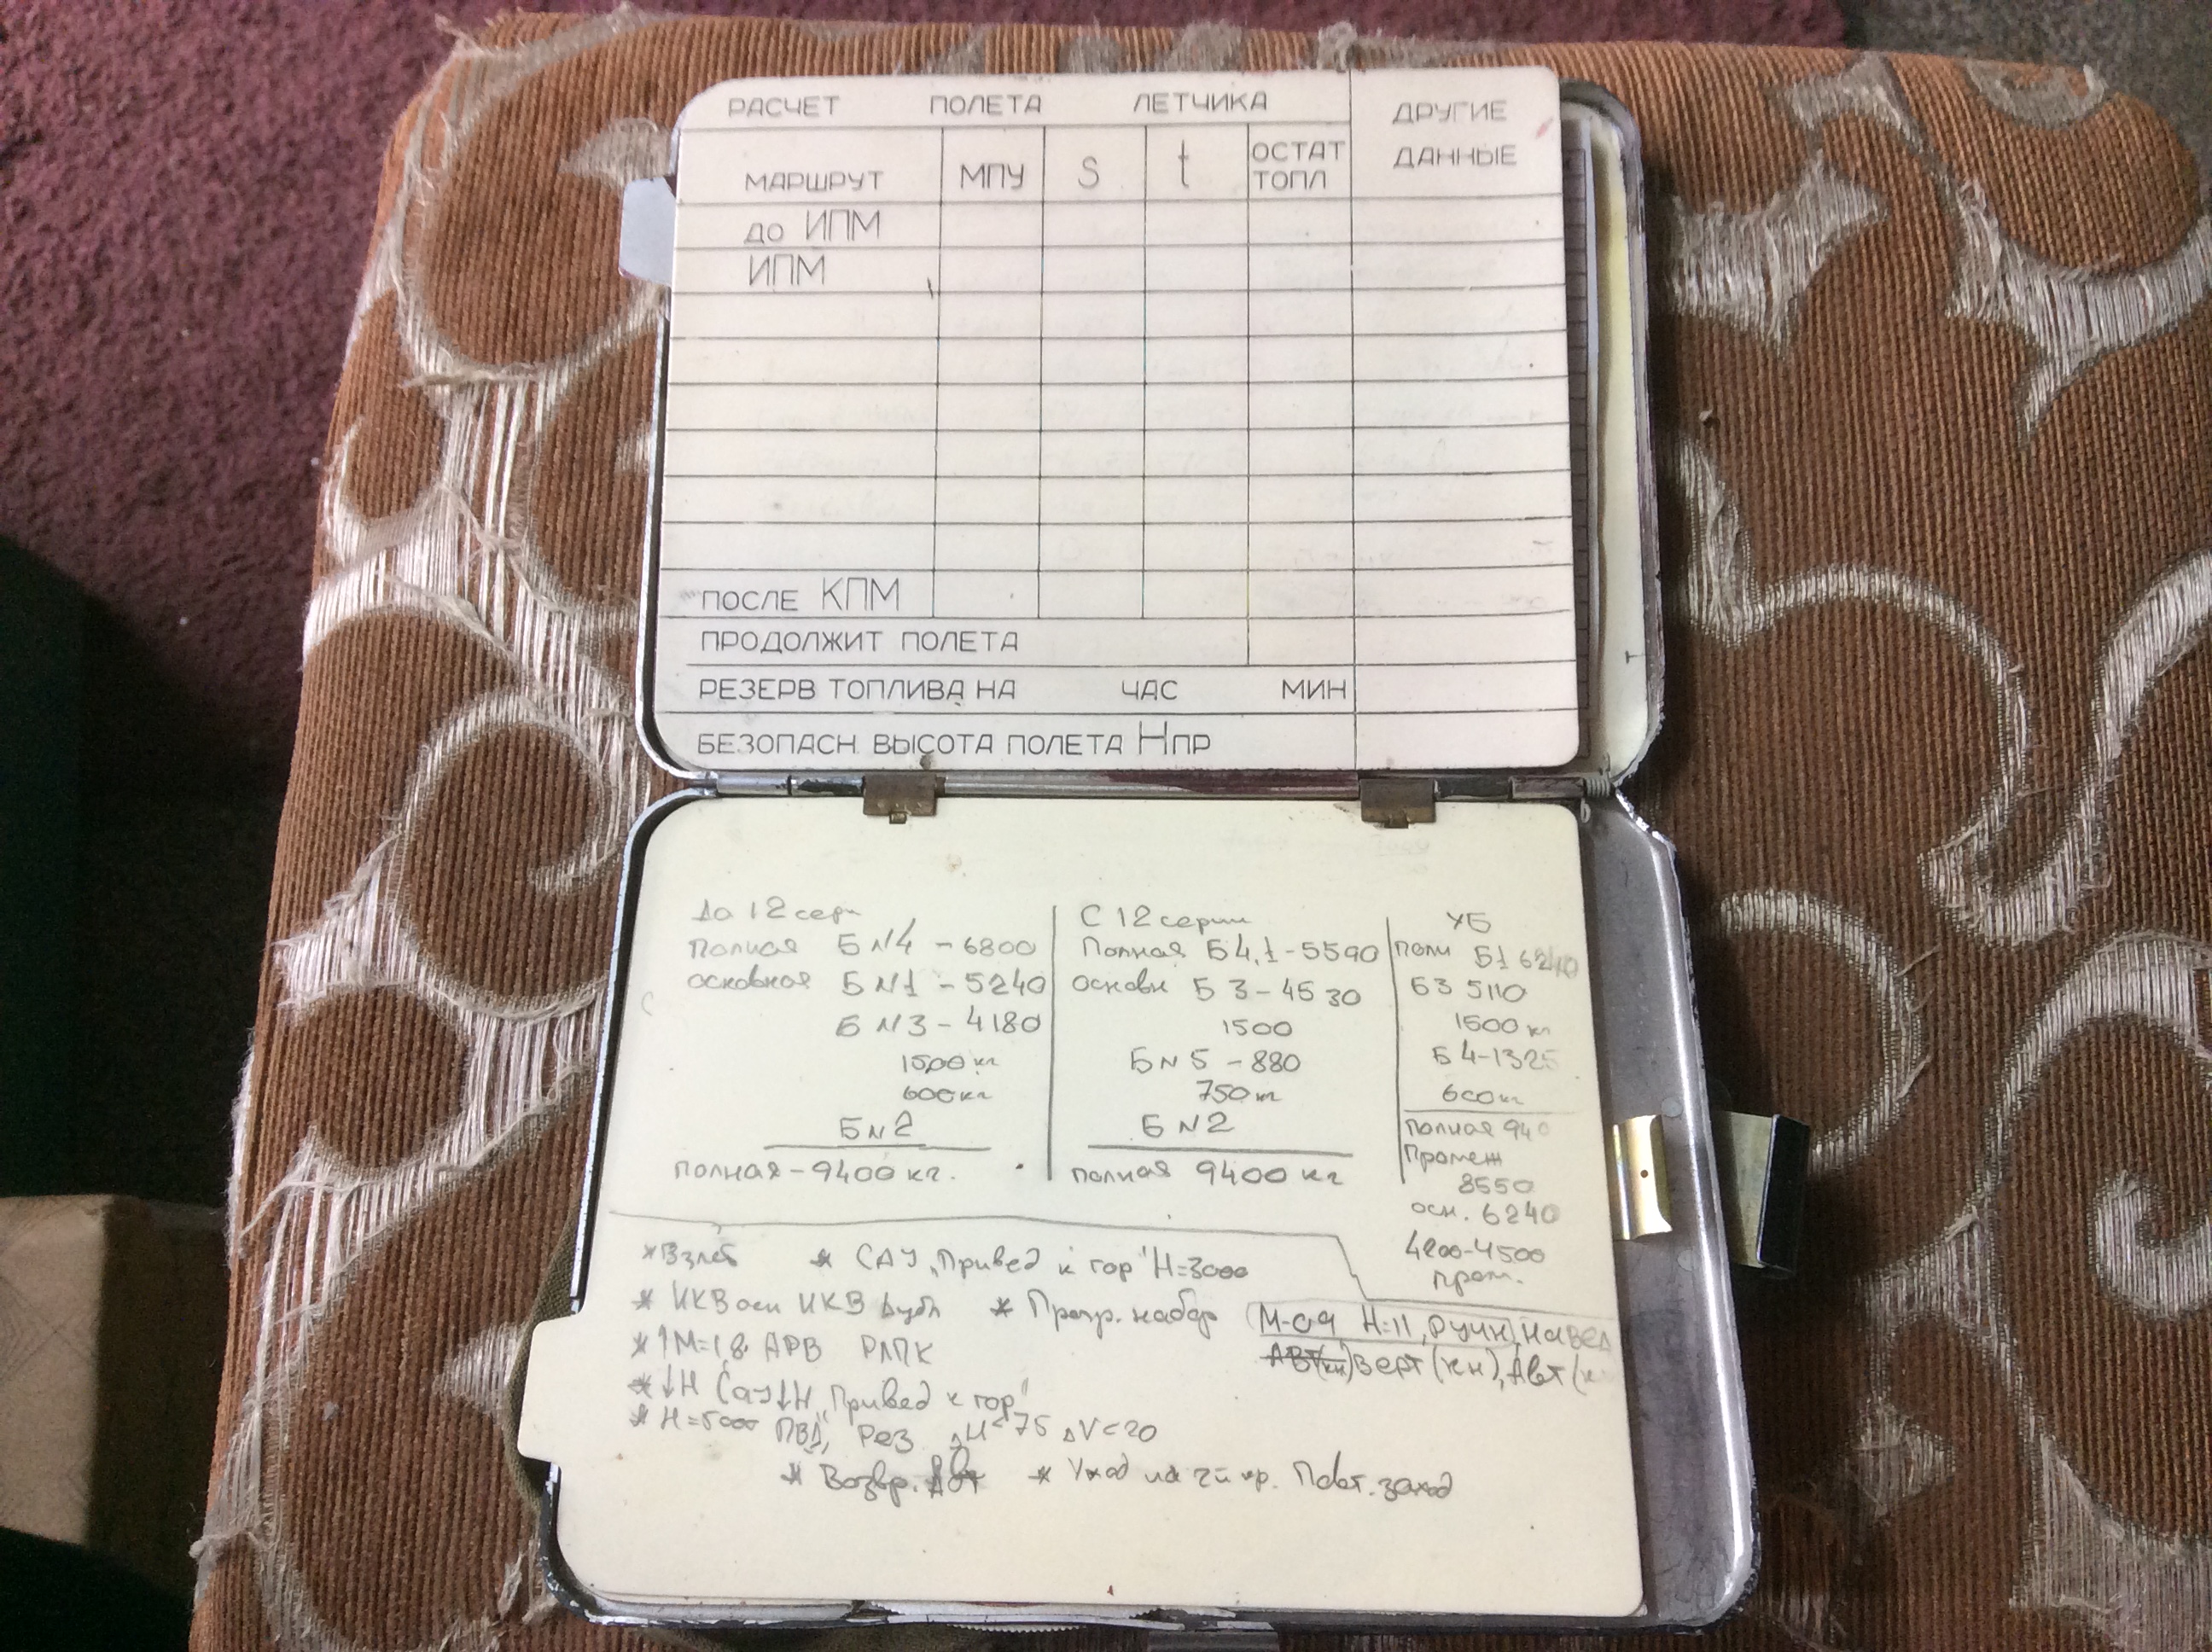 РАСЧЕТ ПОЛЕТА ЛЕТЧИКА
ДРУГИЕ ДАННЫЕ
МАРШРУТ МПУ S t ОСТАТ ТОПЛ
до ИПМ
ИПМ
ПОСЛЕ КПМ
ПРОДОЛЖИТ ПОЛЕТА
РЕЗЕРВ ТОПЛИВА НА ЧАС МИН
БЕЗОПАСН ВЫСОТА ПОЛЕТА Нпр
До 12 сери
полная Б N4 - 6800
основная Б N1 - 5240
Б N3 - 4180
1500 кг
600 кг
Б N2
полная - 9400 кг.
С 12 серии
Полная Б 4,1 - 5590
основн Б 3 - 4530
1500
Б N 5 - 880
750 кг
Б N2
полная 9400 кг
УБ
полн Б1 6240
Б3 5110
1500 кг
Б 4-1325
600 кг
полная 940
Промеж
8550
осн. 6240
4200-4500
пром.
* Взлет * САУ „Привед к гор" Н=3000
* ИКВ осн ИКВ дубл * Прогр. набор (М-0.9 Н=11, ручн, навед
* ↑М=1,8 АРВ РЛПК АВТ(кн) верт (кн), Авт (к
* ↓Н САУ ↓Н „Привед к гор"
* Н=5000 ПВД, рез ΔН<75 ΔV<20
* Возвр. Авт * Уход на 2й кр. Повт. заход